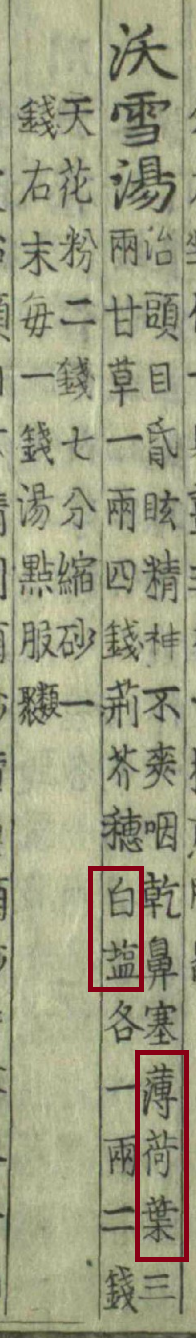 沃雪湯
治頭目昏眩精神不爽咽乾鼻塞薄荷葉三
兩甘草一兩四錢荊芥穗白塩各一兩二錢
天花粉二錢七分縮砂一
錢右末每一錢湯點服類聚